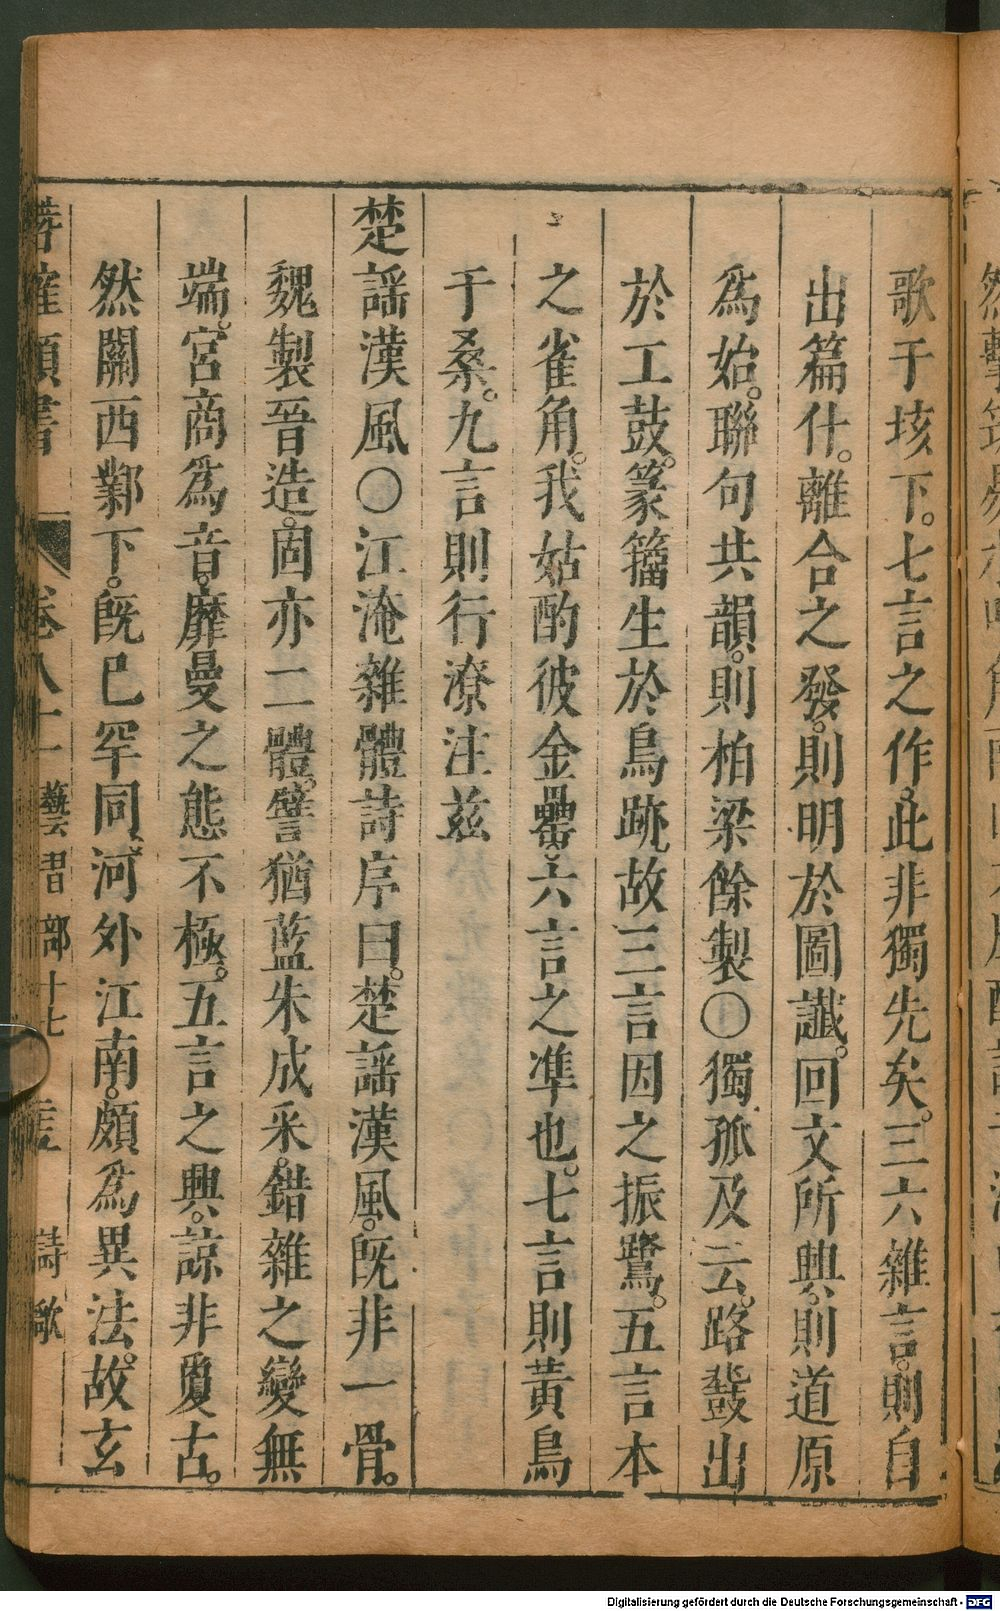 歌于垓下。七言之作。此非獨先矣。三六雜言。則自
出篇什。離合之發。則明於圖讖。回文所興。則道原
爲始。聯句共韻。則柏梁餘製〇獨孤及云。路鼗出
於工鼓。篆籀生於鳥跡。故三言因之振鷺。五言本
之雀角。我姑酌彼金罍。六言之凖也。七言則黃鳥
于桑。九言則行潦注兹
楚謡漢風〇江淹雜體詩序曰。楚謡漢風。旣非一骨。
魏製晉造。固亦二體。譬猶藍朱成釆。錯雜之變無
端。宮商爲音。靡曼之态不極。五言之興。諒非夐古。
然關西鄴下。旣巳罕同。河外江南。頗爲異法。故玄
卷八十一 藝習部十七 詩歌
Digitalisierung gefördert durch die Deutsche Forschungsgemeinschaft - DFG